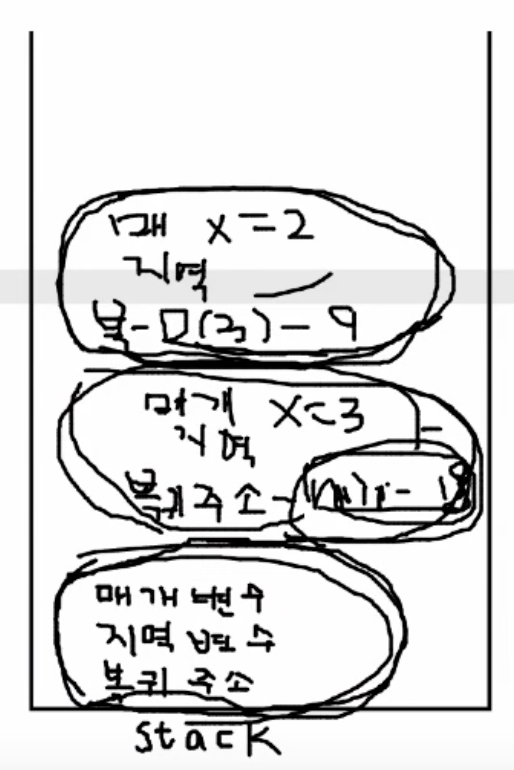 매 x=2
지역
복-D(3)-9
매개 x=3
지역
복귀주소-main-18
매개변수
지역변수
복귀주소
stack